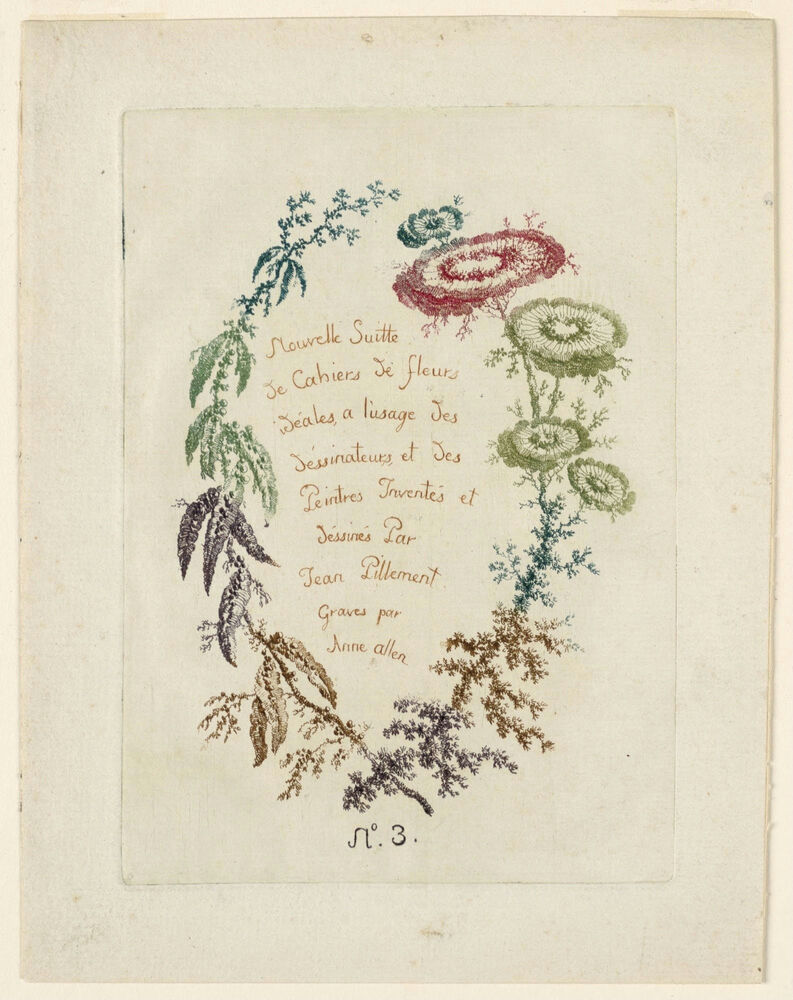 Nouvelle Suitte
de Cahiers dé fleurs
idéales, a l'usage des
déssinateurs, et des
Peintres Inventés et
déssinés Par
Jean Pillement.
Graves par
Anne allen
No. 3.